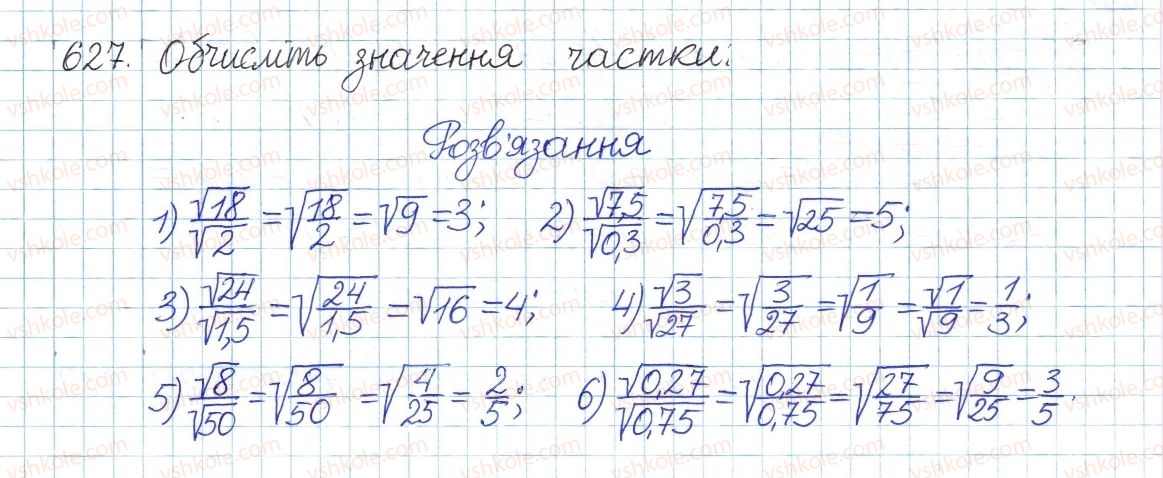 627. Обчисліть значення частки:
Розв'язання
1) √18/√2 = √(18/2) = √9 = 3; 2) √7,5/√0,3 = √(7,5/0,3) = √25 = 5;
3) √24/√1,5 = √(24/1,5) = √16 = 4; 4) √3/√27 = √(3/27) = √(1/9) = √1/√9 = 1/3;
5) √8/√50 = √(8/50) = √(4/25) = 2/5; 6) √0,27/√0,75 = √(0,27/0,75) = √(27/75) = √(9/25) = 3/5.